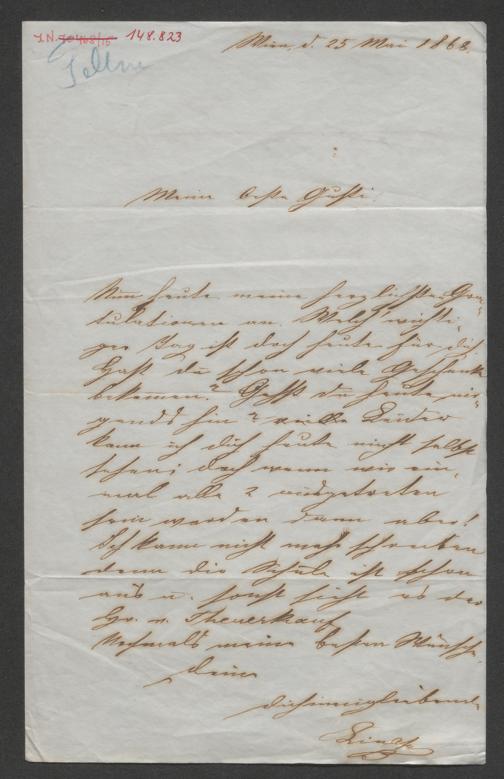 I.N. 148.823
Wien, d. 25 Mai 1868.
Meine beste Gusti!
Nim heute meine herzlichsten Gra-
tulationen an. Welch' wichti-
ger Tag ist doch heute für dich
Hast du schon viele Geschenke
bekommen? Gehst du heute nir-
gends hin? Leider
kann ich dich heute nicht selbst
sehen; doch wenn wir ein-
mal alle 2 ausgetreten
sein werden dann aber!
Ich kann nicht mehr schreiben
denn die Schule ist schon
aus u. sonst sieht es der
Hr. v. Theuerkauf
Nochmals meine besten Wünsche
Deine
dichinnigliebende